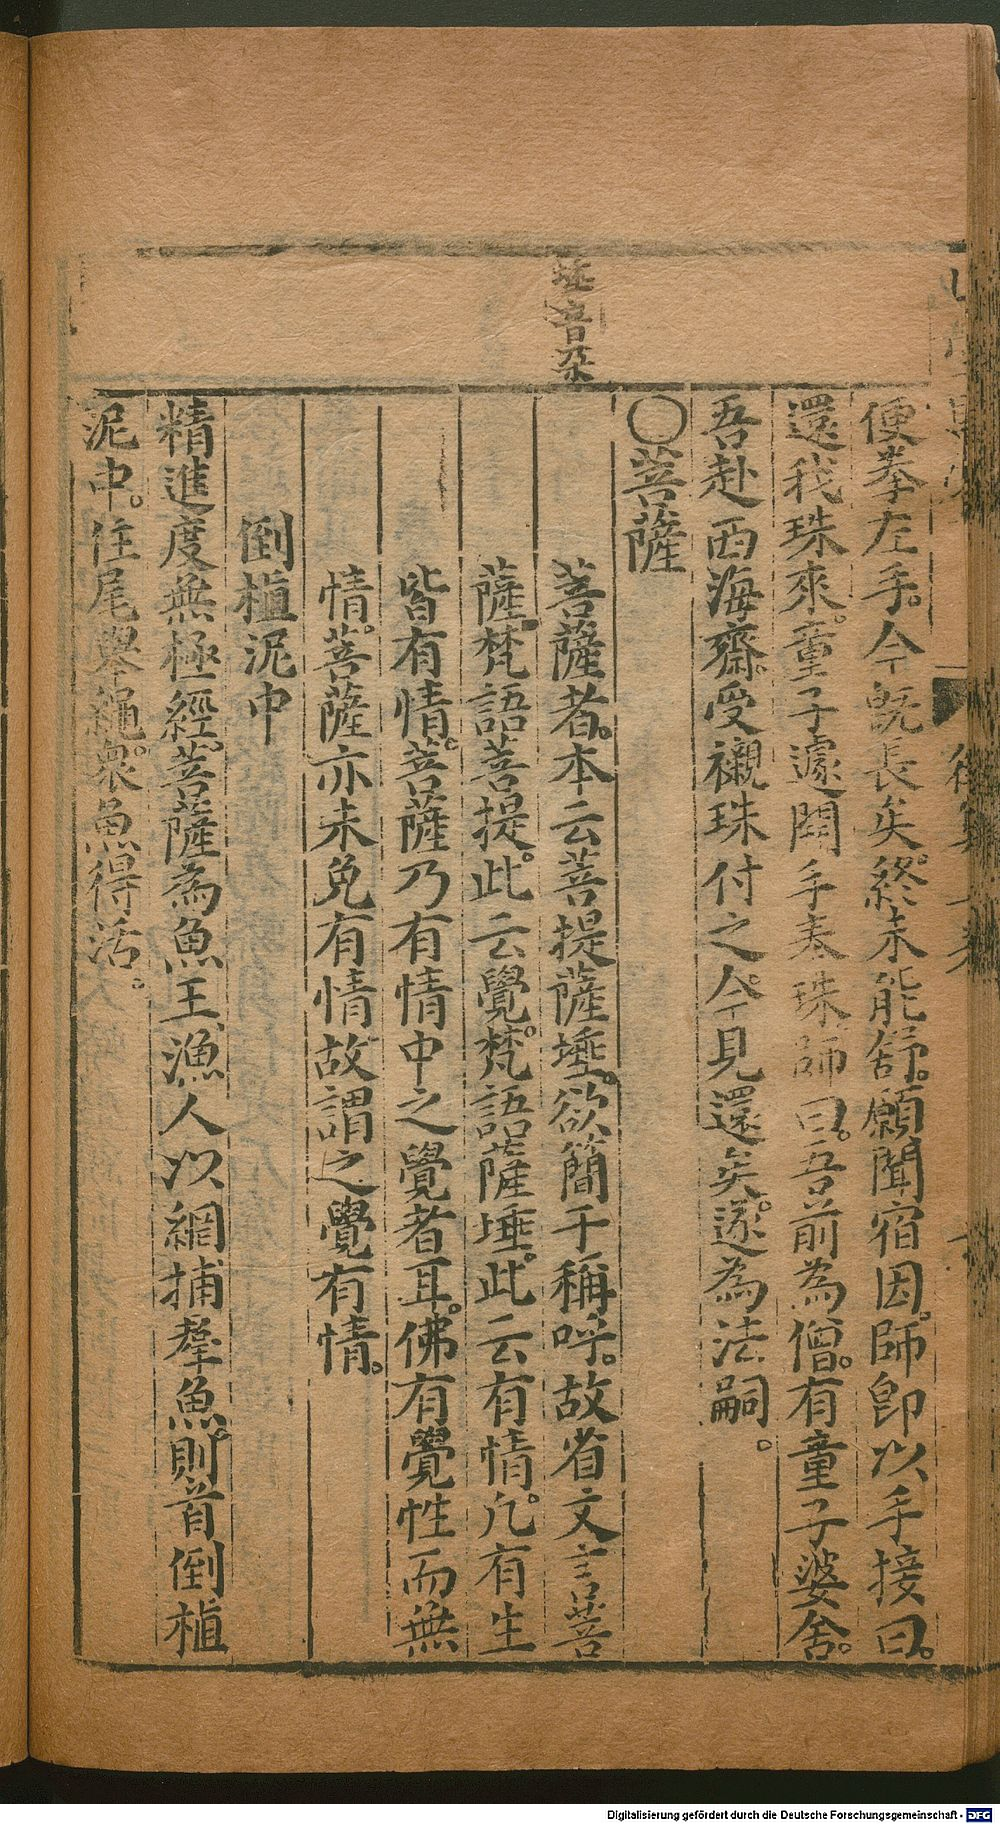 便拳左手。今既長矣。終未能舒。願聞宿因。師即以手接曰。
還我珠來。童子遽開手奉珠。師曰。吾前為僧。有童子婆舍。
吾赴西海齋。受襯珠付之。今見還矣。遂為法嗣。
〇菩薩
埵音朶
菩薩者。本云菩提薩埵。欲簡于稱呼。故省文言菩
薩。梵語菩提。此云覺。梵語薩埵。此云有情。凡有生
皆有情。菩薩乃有情中之覺者耳。佛有覺性而無
情。菩薩亦未免有情。故謂之覺有情。
倒植泥中
精進度無極經。菩薩為魚王。漁人以網捕羣魚。則首倒植
泥中。住尾舉繩。衆魚得活。
Digitalisierung gefördert durch die Deutsche Forschungsgemeinschaft - DFG